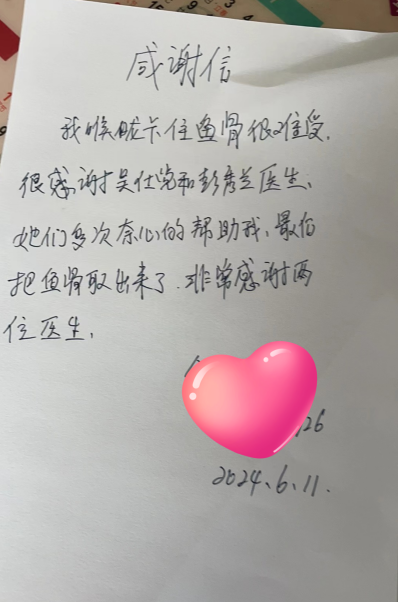 感谢信
我喉咙卡住鱼骨很难受.
很感谢吴仕党和彭秀兰医生、
她们多次奈心的帮助我、最后
把鱼骨取出来了.非常感谢两
位医生,
26
2024、6、11.